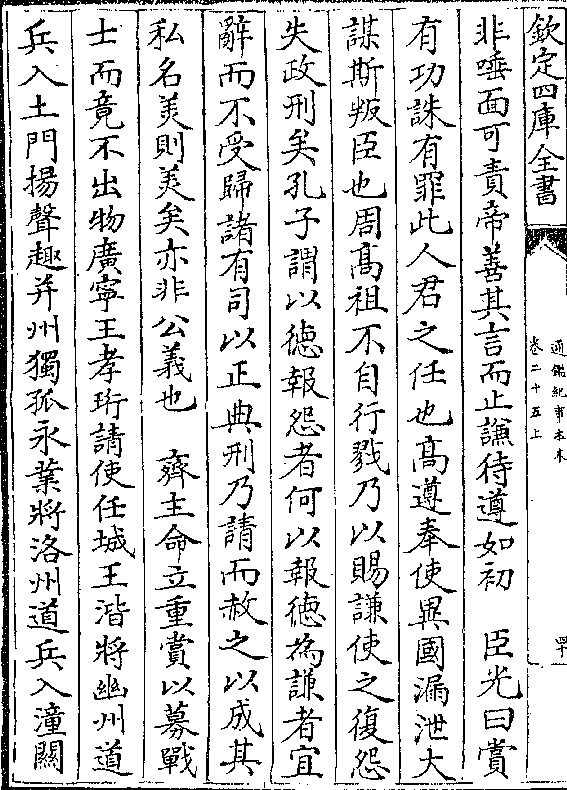 欽定四庫全書
通鑑紀事本末
卷二十五上
非唾面可責帝善其言而止謙待遵如初　臣光曰賞
有功誅有罪此人君之任也髙遵奉使異國漏泄大
謀斯叛臣也周髙祖不自行戮乃以賜謙使之復怨
失政刑矣孔子謂以徳報怨者何以報徳為謙者宜
辭而不受歸諸有司以正典刑乃請而赦之以成其
私名美則美矣亦非公義也　齊主命立重賞以募戰
士而竟不出物廣寧王孝珩請使任城王湝將幽州道
兵入土門揚聲趣并州獨孤永業將洛州道兵入潼關